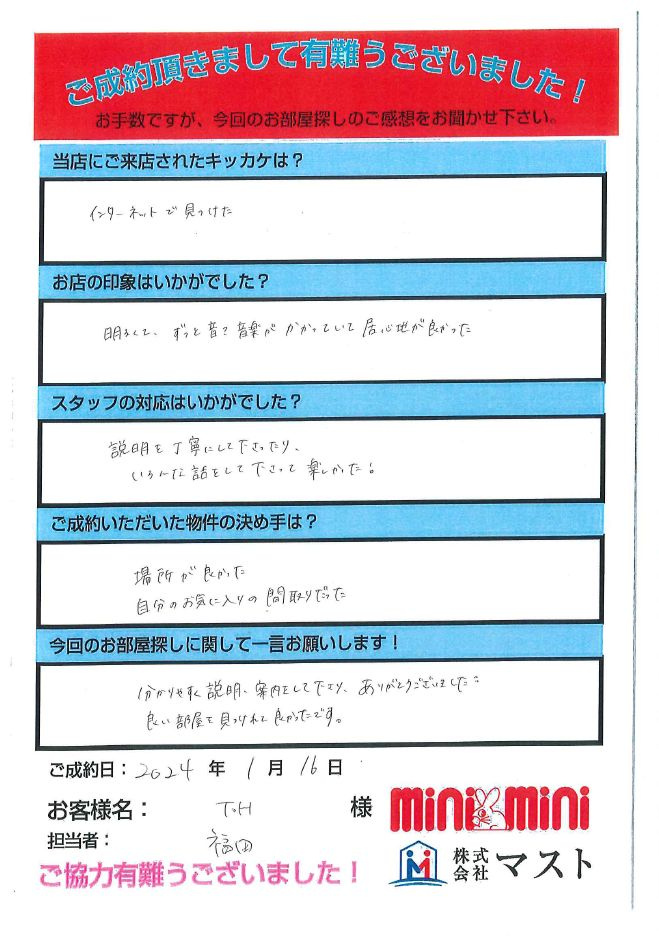 ご成約頂きまして有難うございました！
お手数ですが、今回のお部屋探しのご感想をお聞かせ下さい。
当店にご来店されたキッカケは？
インターネットで見つけた
お店の印象はいかがでした？
明るくて、ずっと音？音楽がかかっていて居心地が良かった
スタッフの対応はいかがでした？
説明を丁寧にして下さったり、
いろんな話をして下さって楽しかった！
ご成約いただいた物件の決め手は？
場所が良かった
自分のお気に入りの間取りだった
今回のお部屋探しに関して一言お願いします！
分かりやすく説明、案内をして下さり、ありがとうございました！
良い部屋を見つけれて良かったです。
ご成約日：2024年1月16日
お客様名：T.H様
mini mini
担当者：福田
株式会社マスト
ご協力有難うございました！